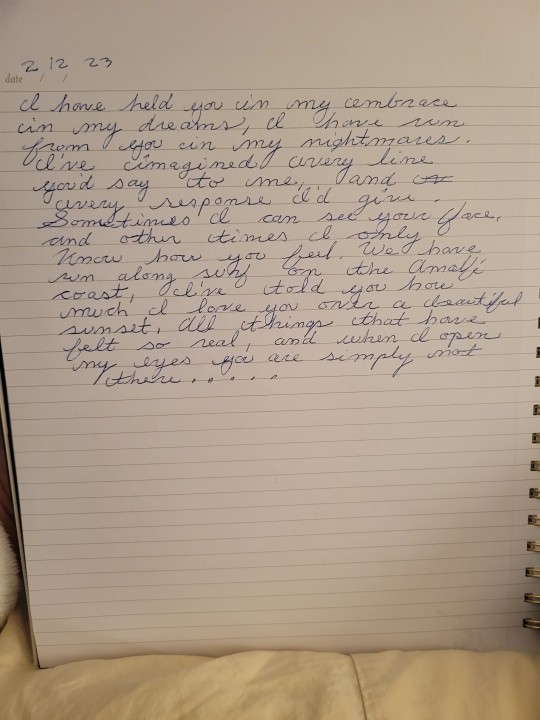 2 12 23
date / /
I have held you in my embrace
in my dreams, I have run
from you in my nightmares.
I've imagined every line
you'd say to me, and
every response I'd give.
Sometimes I can see your face,
and other times I only
know how you feel. We have
run along surf on the Amalfi
coast, I've told you how
much I love you over a beautiful
sunset. All things that have
felt so real, and when I open
my eyes you are simply not
there.....